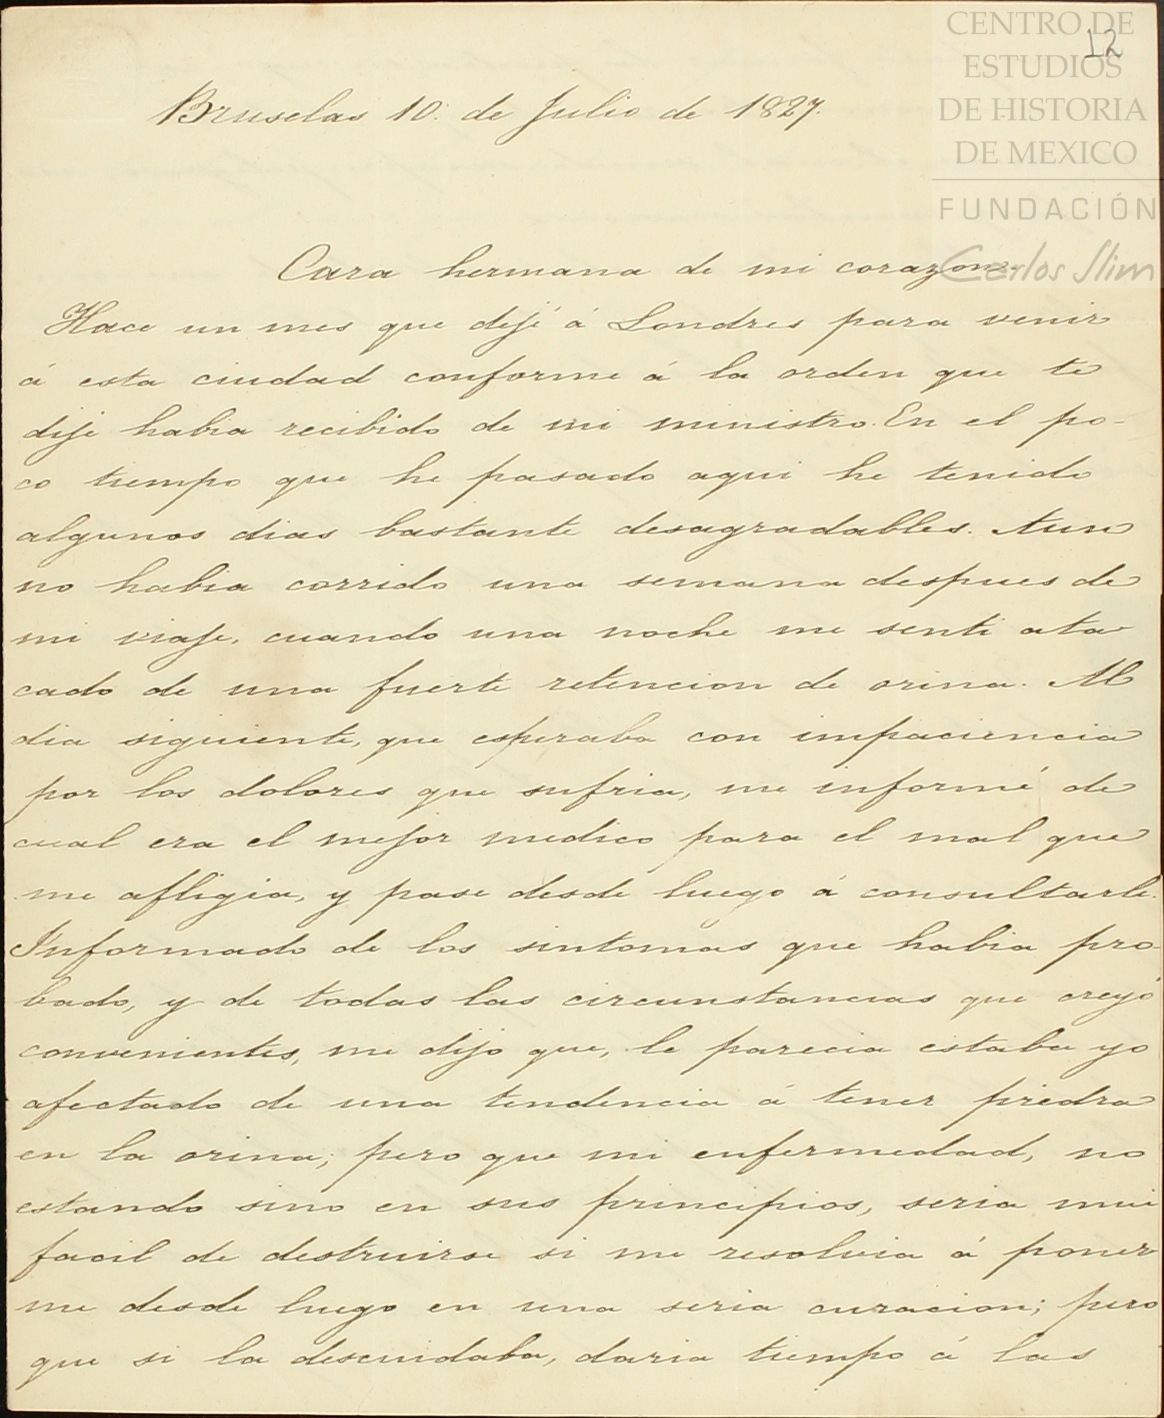 CENTRO DE
ESTUDIOS
DE HISTORIA
DE MEXICO
FUNDACIÓN
Carlos Slim
12
Bruselas 10. de Julio de 1827.
Cara hermana de mi corazon:
Hace un mes que dejé á Londres para venir
á esta ciudad conforme á la orden que te
dije habia recibido de mi ministro. En el po-
co tiempo que he pasado aqui he tenido
algunos dias bastante desagradables. Aun
no habia corrido una semana despues de
mi viaje, cuando una noche me senti ata
cado de una fuerte retencion de orina. Al
dia siguiente, que esperaba con impaciencia
por los dolores que sufria, me informé de
cual era el mejor medico para el mal que
me afligia, y pase desde luego á consultarle.
Informado de los sintomas que habia pro
bado, y de todas las circunstancias que creyó
convenientes, me dijo que, le parecia estaba yo
afectado de una tendencia á tener piedra
en la orina; pero que mi enfermedad, no
estando sino en sus principios, seria mui
facil de destruirse si me resolvia á poner
me desde luego en una seria curacion; pero
que si la descuidaba, daria tiempo á las